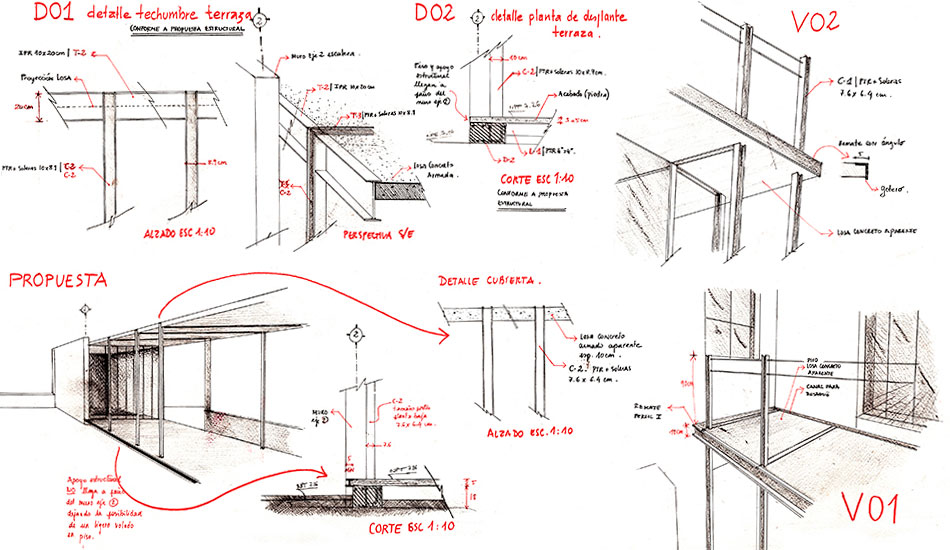 D01 detalle techumbre terraza
(CONFORME A PROPUESTA ESTRUCTURAL
2
IPR 10x20cm | T-2
Proyección Losa
20cm
PTR + Soleras 10x8.9 | T-2
C-2
8.9cm
ALZADO ESC 1:10
Muro eje 2 escalera.
T-2 | IPR 10x20cm
T-3 | PTR + Soleras 10x8.9
C-2
Losa Concreto
Armada.
PERSPECTIVA S/E
D02 detalle planta de desplante
terraza.
2
Piso y apoyo
estructural
llegan a
paño del
muro eje 2
10cm
C-2 | PTR + Soleras 10x8.9cm.
Acabado (piedra)
3-5cm
D-2
CORTE ESC 1:10
CONFORME A PROPUESTA
ESTRUCTURAL
V02
C-1 | PTR + Soleras
7.6 x 6.4 cm.
Remate con ángulo
5
gotero
LOSA CONCRETO APARENTE
PROPUESTA
Apoyo estructural
NO llega a paño
del muro eje 2
dejando la posibilidad
de un ligero volado
en piso.
2
MURO
eje 2
C-2
7.6 x 6.4 cm
7.6
5
NPT
NPT
5
18
CORTE ESC 1:10
DETALLE CUBIERTA.
LOSA CONCRETO
armado aparente
esp. 10cm.
C-2. PTR + Soleras
7.6 x 6.4 cm.
ALZADO ESC. 1:10
90cm
REMATE
PERFIL I
PISO
LOSA CONCRETO
APARENTE
CANAL PARA
V01